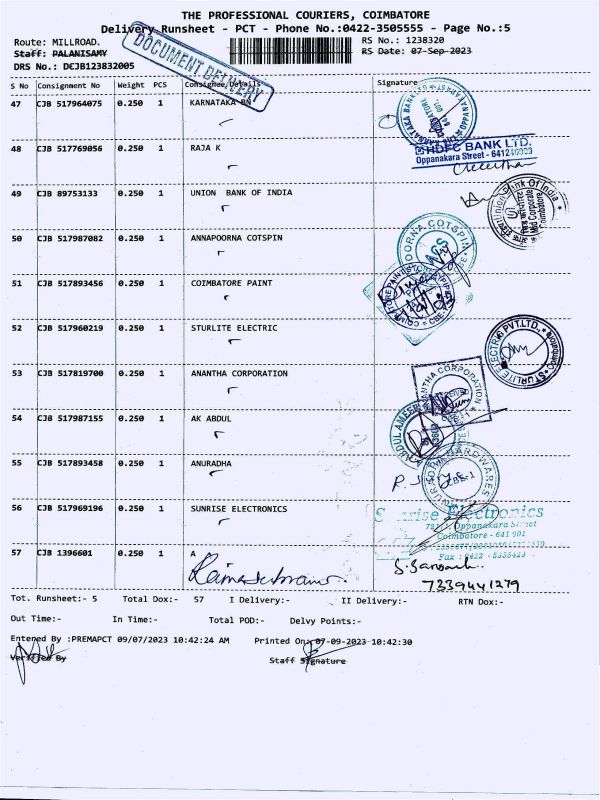 THE PROFESSIONAL COURIERS, COIMBATORE
Delivery Runsheet - PCT - Phone No.:0422-3505555 - Page No.:5
Route: MILLROAD.
RS No.: 1238320
Staff: PALANISAMY
RS Date: 07-Sep-2023
DRS No.: DCJB123832005
DOCUMENT DELIVERY
S No Consignment No Weight PCS Consignee Details Signature
47 CJB 517964075 0.250 1 KARNATAKA BN
48 CJB 517769056 0.250 1 RAJA K
HDFC BANK LTD.
Oppanakara Street - 641
49 CJB 89753133 0.250 1 UNION BANK OF INDIA
Union Bank Of India
Coimbatore
50 CJB 517987082 0.250 1 ANNAPOORNA COTSPIN
POORNA COTSPIN
51 CJB 517893456 0.250 1 COIMBATORE PAINT
52 CJB 517960219 0.250 1 STURLITE ELECTRIC
STURLITE ELECTRIC PVT.LTD.
53 CJB 517819700 0.250 1 ANANTHA CORPORATION
ANTHA CORPORATION
54 CJB 517987155 0.250 1 AK ABDUL
ABDUL AMEER
55 CJB 517893458 0.250 1 ANURADHA
HARDWARES
CBE-1
56 CJB 517969196 0.250 1 SUNRISE ELECTRONICS
Sunrise Electronics
Oppanakara Street
Coimbatore - 641 001
Fax : 0422 - 5355423
57 CJB 1396601 0.250 1 A
7339441279
Tot. Runsheet:- 5 Total Dox:- 57 I Delivery:- II Delivery:- RTN Dox:-
Out Time:- In Time:- Total POD:- Delvy Points:-
Entered By :PREMAPCT 09/07/2023 10:42:24 AM Printed On: 07-09-2023 10:42:30
Verified By Staff Signature